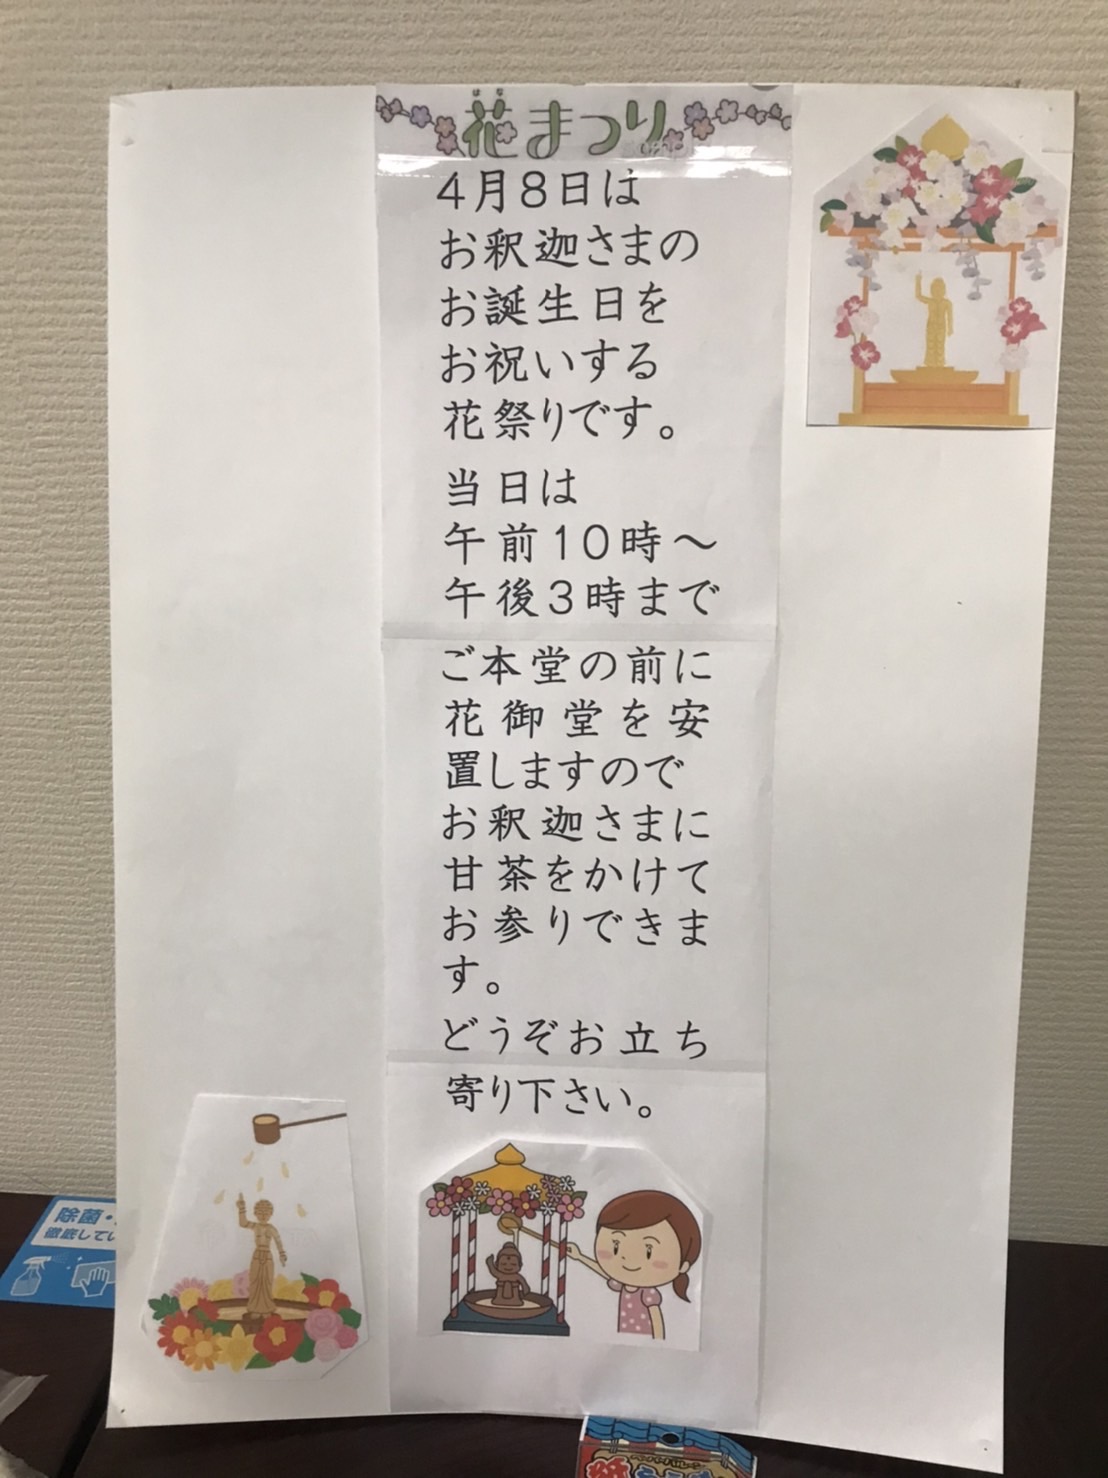 花まつり
はな
4月8日は
お釈迦さまの
お誕生日を
お祝いする
花祭りです。
当日は
午前10時～
午後3時まで
ご本堂の前に
花御堂を安
置しますので
お釈迦さまに
甘茶をかけて
お参りできま
す。
どうぞお立ち
寄り下さい。
除菌・
徹底してい